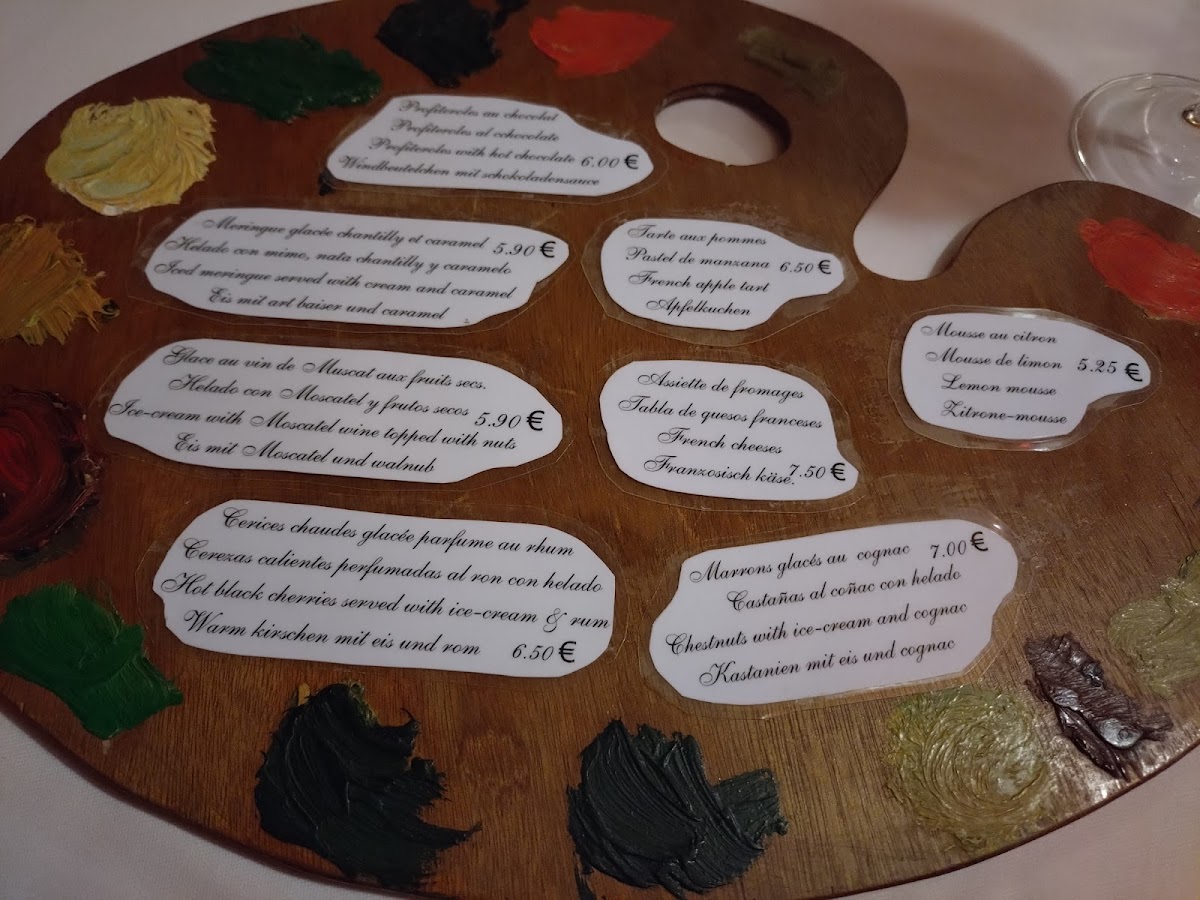 Profiteroles au chocolat
Profiteroles al cchocolate
Profiteroles with hot chocolate 6.00 €
Windbeutelchen mit schokoladensauce
Meringue glacée chantilly et caramel 5.90 €
Helado con mimo, nata chantilly y caramelo
Iced meringue served with cream and caramel
Eis mit art baiser und caramel
Tarte aux pommes
Pastel de manzana 6.50 €
French apple tart
Apfelkuchen
Mousse au citron
Mousse de limon 5.25 €
Lemon mousse
Zitrone-mousse
Glace au vin de Muscat aux fruits secs.
Helado con Moscatel y frutos secos 5.90 €
Ice-cream with Moscatel wine topped with nuts
Eis mit Moscatel und walnub
Assiette de fromages
Tabla de quesos franceses
French cheeses
Franzosisch käse. 7.50 €
Cerices chaudes glacée parfume au rhum
Cerezas calientes perfumadas al ron con helado
Hot black cherries served with ice-cream & rum
Warm kirschen mit eis und rom 6.50 €
Marrons glacés au cognac 7.00 €
Castañas al coñac con helado
Chestnuts with ice-cream and cognac
Kastanien mit eis und cognac